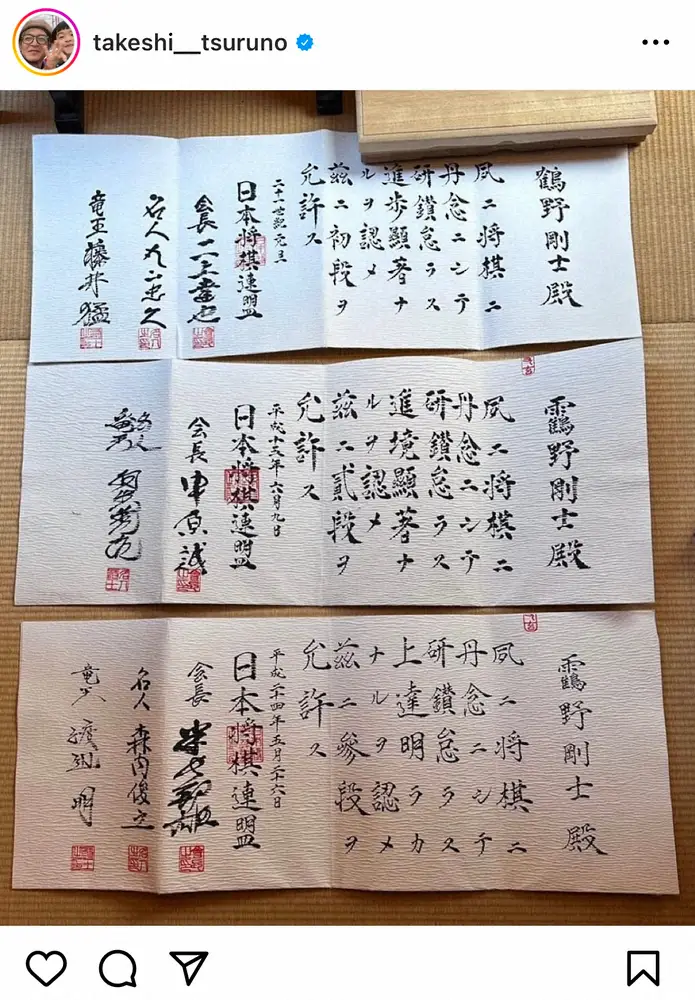 takeshi__tsuruno
鶴野剛士殿
夙ニ将棋ニ
丹念ニシテ
研鑽怠ラス
進歩顕著ナ
ルヲ認メ
茲ニ初段ヲ
允許ス
二十一世紀元旦
日本将棋連盟
会長 二上達也
名人 丸山忠久
竜王 藤井猛
靏野剛士殿
夙ニ将棋ニ
丹念ニシテ
研鑽怠ラス
進境顕著ナ
ルヲ認メ
茲ニ貳段ヲ
允許ス
日本将棋連盟
会長 中原誠
靏野剛士殿
夙ニ将棋ニ
丹念ニシテ
研鑽怠ラス
上達明ラカ
ナルヲ認メ
茲ニ參段ヲ
允許ス
平成二十四年五月二十六日
日本将棋連盟
会長 米長邦雄
名人 森内俊之
竜王 渡辺明